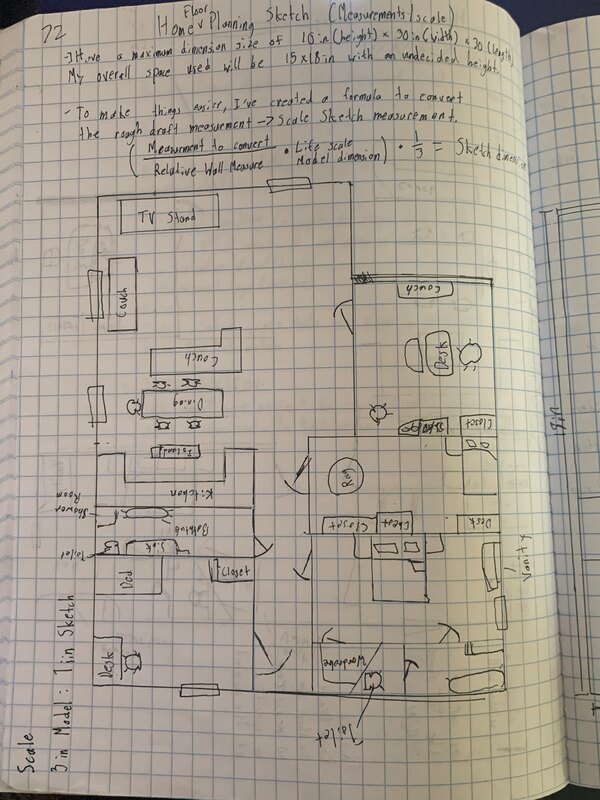 72
Home Floor Planning Sketch (Measurements/scale)
→ Have a maximum dimension size of 16 in (height) × 30 in (width) × 30 (length)
My overall space used will be 15 x 18 in with an undecided height.
- To make things easier, I've created a formula to convert
the rough draft measurement → Scale Sketch measurement.
(Measurment to convert / Relative Wall Measure · Life scale Model dimension) · 1/3 = Sketch dimension
TV Stand
Couch
Couch
Couch
Desk
Dining
Island
Closet
Rug
Kitchen
Shower Room
Bathtub
Closet
Chest
Desk
Toilet
Sink
Bed
Closet
Vanity
Desk
Wardrobe
Toilet
Scale
3 in Model : 1 in Sketch